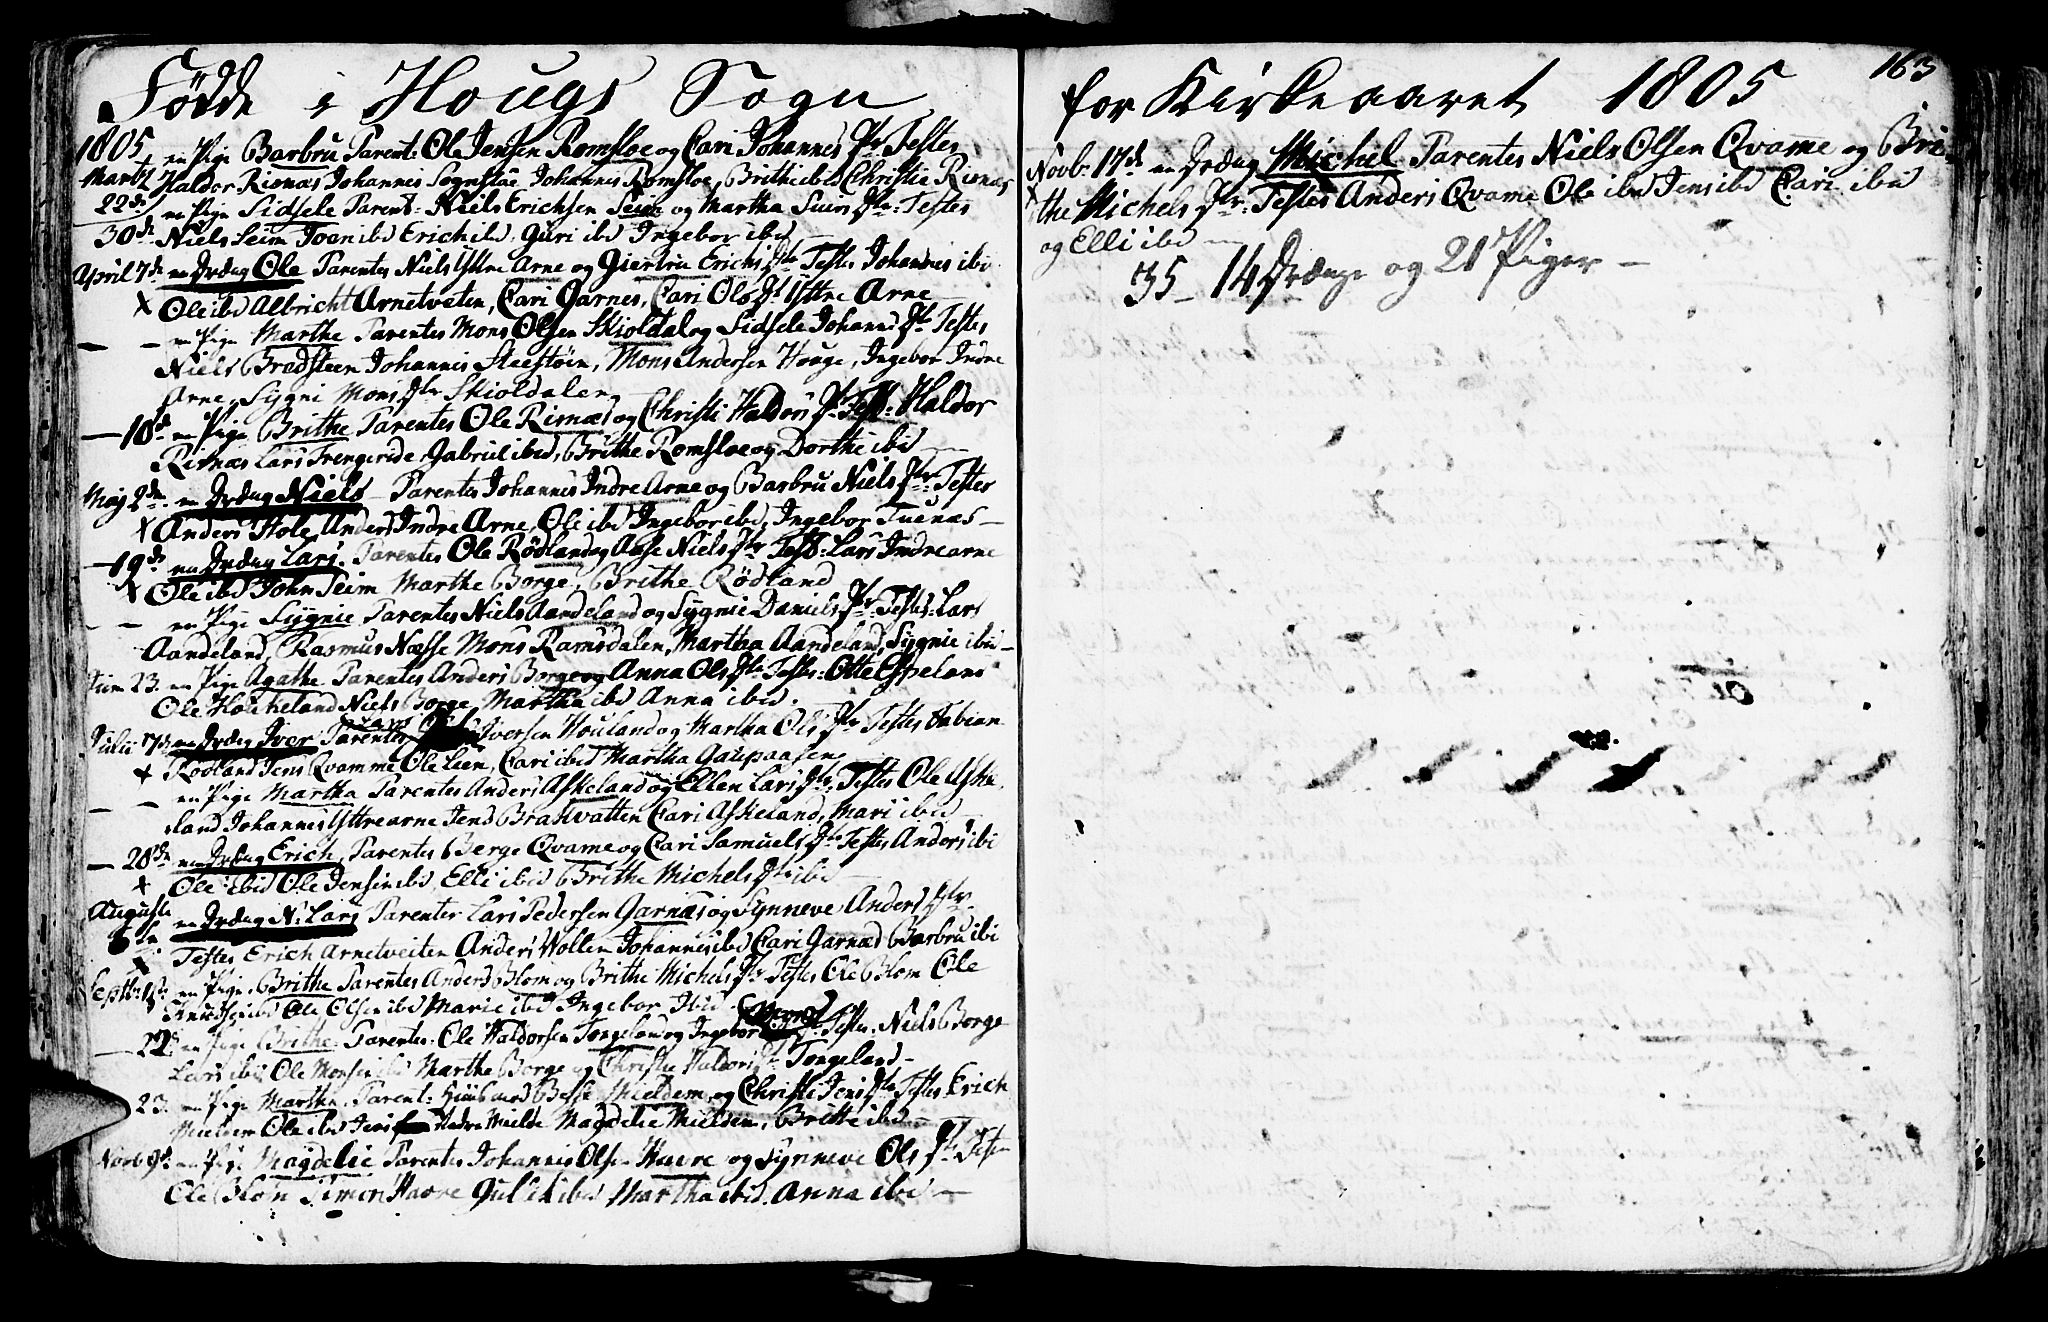 Fødde i Hougs Sogn
1805 en Pige Barbru Parent: Ole Jensen Romsloe og Cari Johannes Dtr Testes
Haldor Risnæs Johannes Sognstøe Johannes Romsloe, Brithe ibid Christie Risnæs
22de en Pige Sidsele Parent: Niels Erichsen Seim og Martha Siurs Dtr: Testes
30de Niels Seim Joen ibd Erich ibd. Guri ibd Ingebor ibd
April 7de en Dræng Ole Parentes Niels Yttre Arne og Giertrue Erichs Dtr Testes Johannes ibi
x Ole ibd Albricht Arnetveten, Cari Garnes, Cari Ols Dtr Yttre Arne
— — en Pige Marthe Parentes Mons Olsen Skioldal og Sidsele Johannes Dtr Testes
Niels Brødsteen Johannes Mons Andersen Houge, Ingebor Indre
Arne, Sygni Mons Dtr Skioldalen
— 18de en Pige Brithe Parentes Ole Risnæs og Christi Haldors Dtr Test: Haldor
Risnæs Lars Trengeride, Gabriel ibid, Brithe Romsloe og Dorthe ibid
Maj 2de en Dræng Niels Parentes Johannes Indre Arne og Barbru Niels Dtr Testes
x Anders Hole Anders Indre Arne, Ole ibd Ingebor ibd, Ingebor Tuenæs
— 19de en Dræng Lars. Parentes Ole Rødland og Aase Niels Dtr Test: Lars Indre arne
x Ole ibd John Seim Marthe Borge, Brithe Rødland
— — en Pige Sygnie Parentes Niels Aandeland og Sygnie Daniels Dtr Testes: Lars
Aandeland, Rasmus Næsse Mons Ramsdalen, Martha Aandeland, Sygnie ibid
Juni 23. en Pige Agathe Parentes Anders Borge og Anna Ols Dtr Testes: Otte Espeland
Ole Houkeland Niels Borge Martha ibd Anna ibid.
Julii 7de en Dræng Iver Parentes Iversen Houland og Martha Ols Dtr Testes Fabian
x Rødland Jens Qvamme Ole Leen, Cari ibid Martha Gaupaasen
— — en Pige Martha Parentes Anders Askeland og Ellen Lars Dtr, Testes Ole Aske
land Johannes Yttrearne Jens Brakvatten Cari Askeland, Mari ibid
— 28de en Dræng Erich, Parentes Berge Qvame og Cari Samuels Dtr Testes Anders ibi
x Ole ibid Ole Jensen ibd, Elli ibid Brithe Michels Dtr ibid
Augusti en Dræng N: Lars Parentes Lars Pedersen Garnæs og Synneve Anders Dtr
Testes Erich Arnetveiten Anders Wollen Johannes ibd Cari Garnæs Barbru ibi
Septbr 1ste en Pige Brithe Parentes Anders Blom og Brithe Michels Dtr Testes Ole Blom Ole
Knudsen ibd Ole Olsen ibd Marie ibd Ingebor Ibid
— 22de en Pige Brithe Parentes: Ole Haldorsen Tongeland og Ingebor Dtr Testes. Niels Borge
Lars ibid Ole Monsen ibd Marthe Borge og Christie Haldors Dtr Tongeland
23. en Pige Martha Parent: Besse Mieldem og Christi Jens Dtr Testes Erich
Mieldem Ole ibd Jens Indre Mielde Magdelie Mieldem, Britte ibid
Novb en Pige Magdelie Parentes Johannes Olsen Haure og Synneve Ols Dtr Testes
Ole Blom Simon Haure Gulik ibd Martha ibid. Anna ibd
for Kirkeaaret 1805
163
Novb: 17de en Dræng Michel Parentes Niels Olsen Qvame og Bri
the Michels Dtr: Testes Anders Qvame Ole ibd Jens ibd Cari ibid
og Elli ibd
35 — 14 Drænge og 21 Piger —